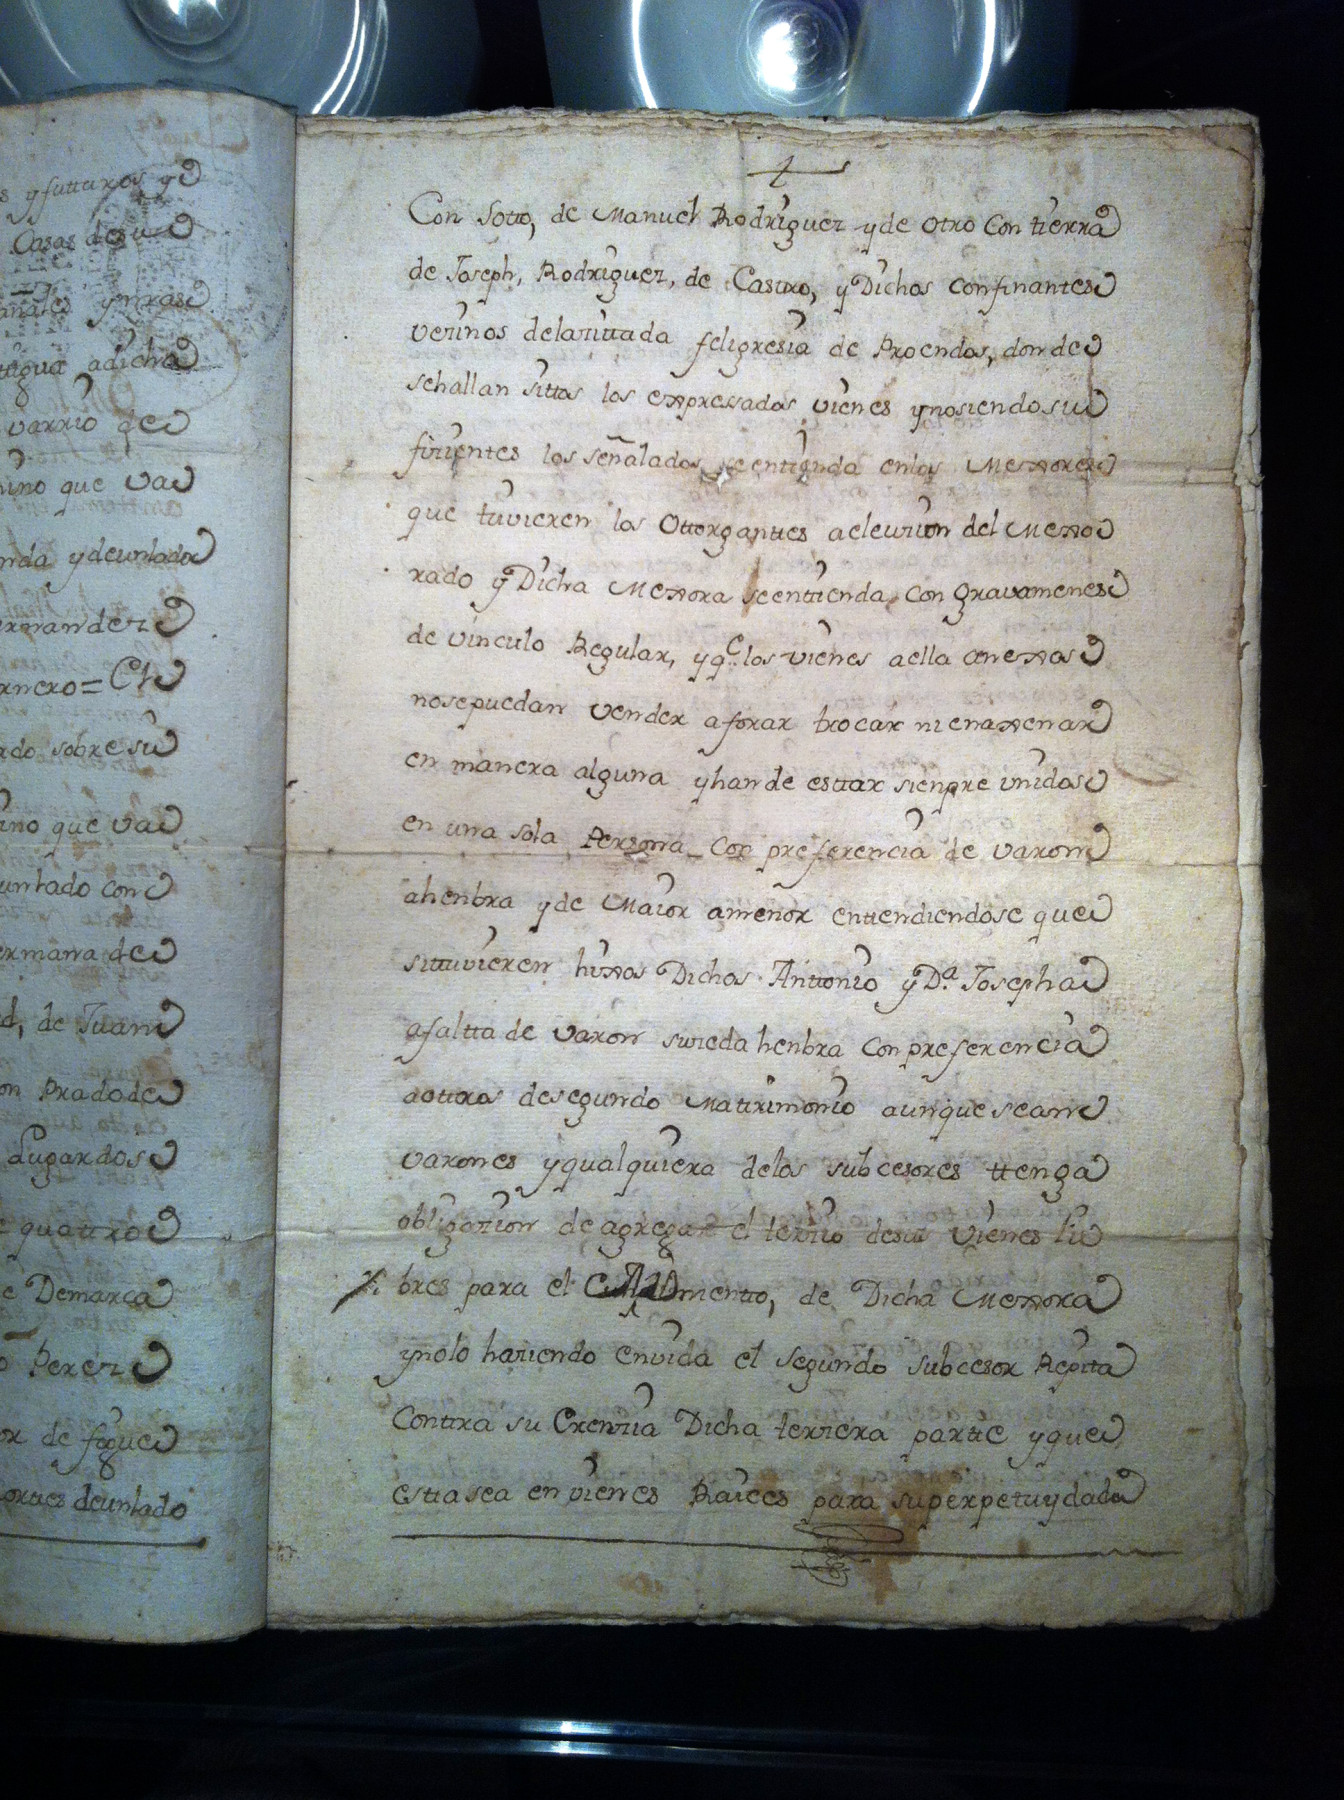 s y futturos y
Casas de su
anales y mas
ttigua a dicha
varrio de
mino que va
nda y de un lado
ernandez
rnero = Ct
ado sobre su
ino que va
un lado con
ermana de
d, de Juan
on Prado de
Lugar dos
e quattro
e Demarca
o Perez
or de fogue
ortes de un lado
Con Sotto, de Manuel Rodriguez y de otro Con tierra
de Joseph, Rodriguez, de Castro, y Dichos confinantes
vezinos de la zittada feligresia de Proendos, donde
se hallan sittos los expressados vienes y no siendo su
fizientes los señalados, se entienda en los Mexores
que tuvieren los Ottorgantes a elewzion del Mexo
rado y Dicha Mexora se enttienda con gravamenes
de vinculo Regular, y q.e los vienes a ella anexos
no se puedan vender aforar trocar ni enaxenar
en manera alguna y han de esttar sienpre unidos
en una sola Persona Con preferencia de varon
a henbra y de Maior a menor enttendiendose que
si ttuvieren hixos Dichos Anttonio y D.a Josepha
a faltta de varon suzeda henbra con preferencia
a ottros de segundo Mattrimonio aunque sean
varones y qualquiera de los subcesores ttenga
obligazion de agregar el terzio de sus vienes li
bres para el mentto, de Dicha Mexora
y no lo haziendo en vida el segundo subcesor Repita
Conttra su Erenzia Dicha terzera partte y que
estta sea en vienes Raices para su perpetuydad